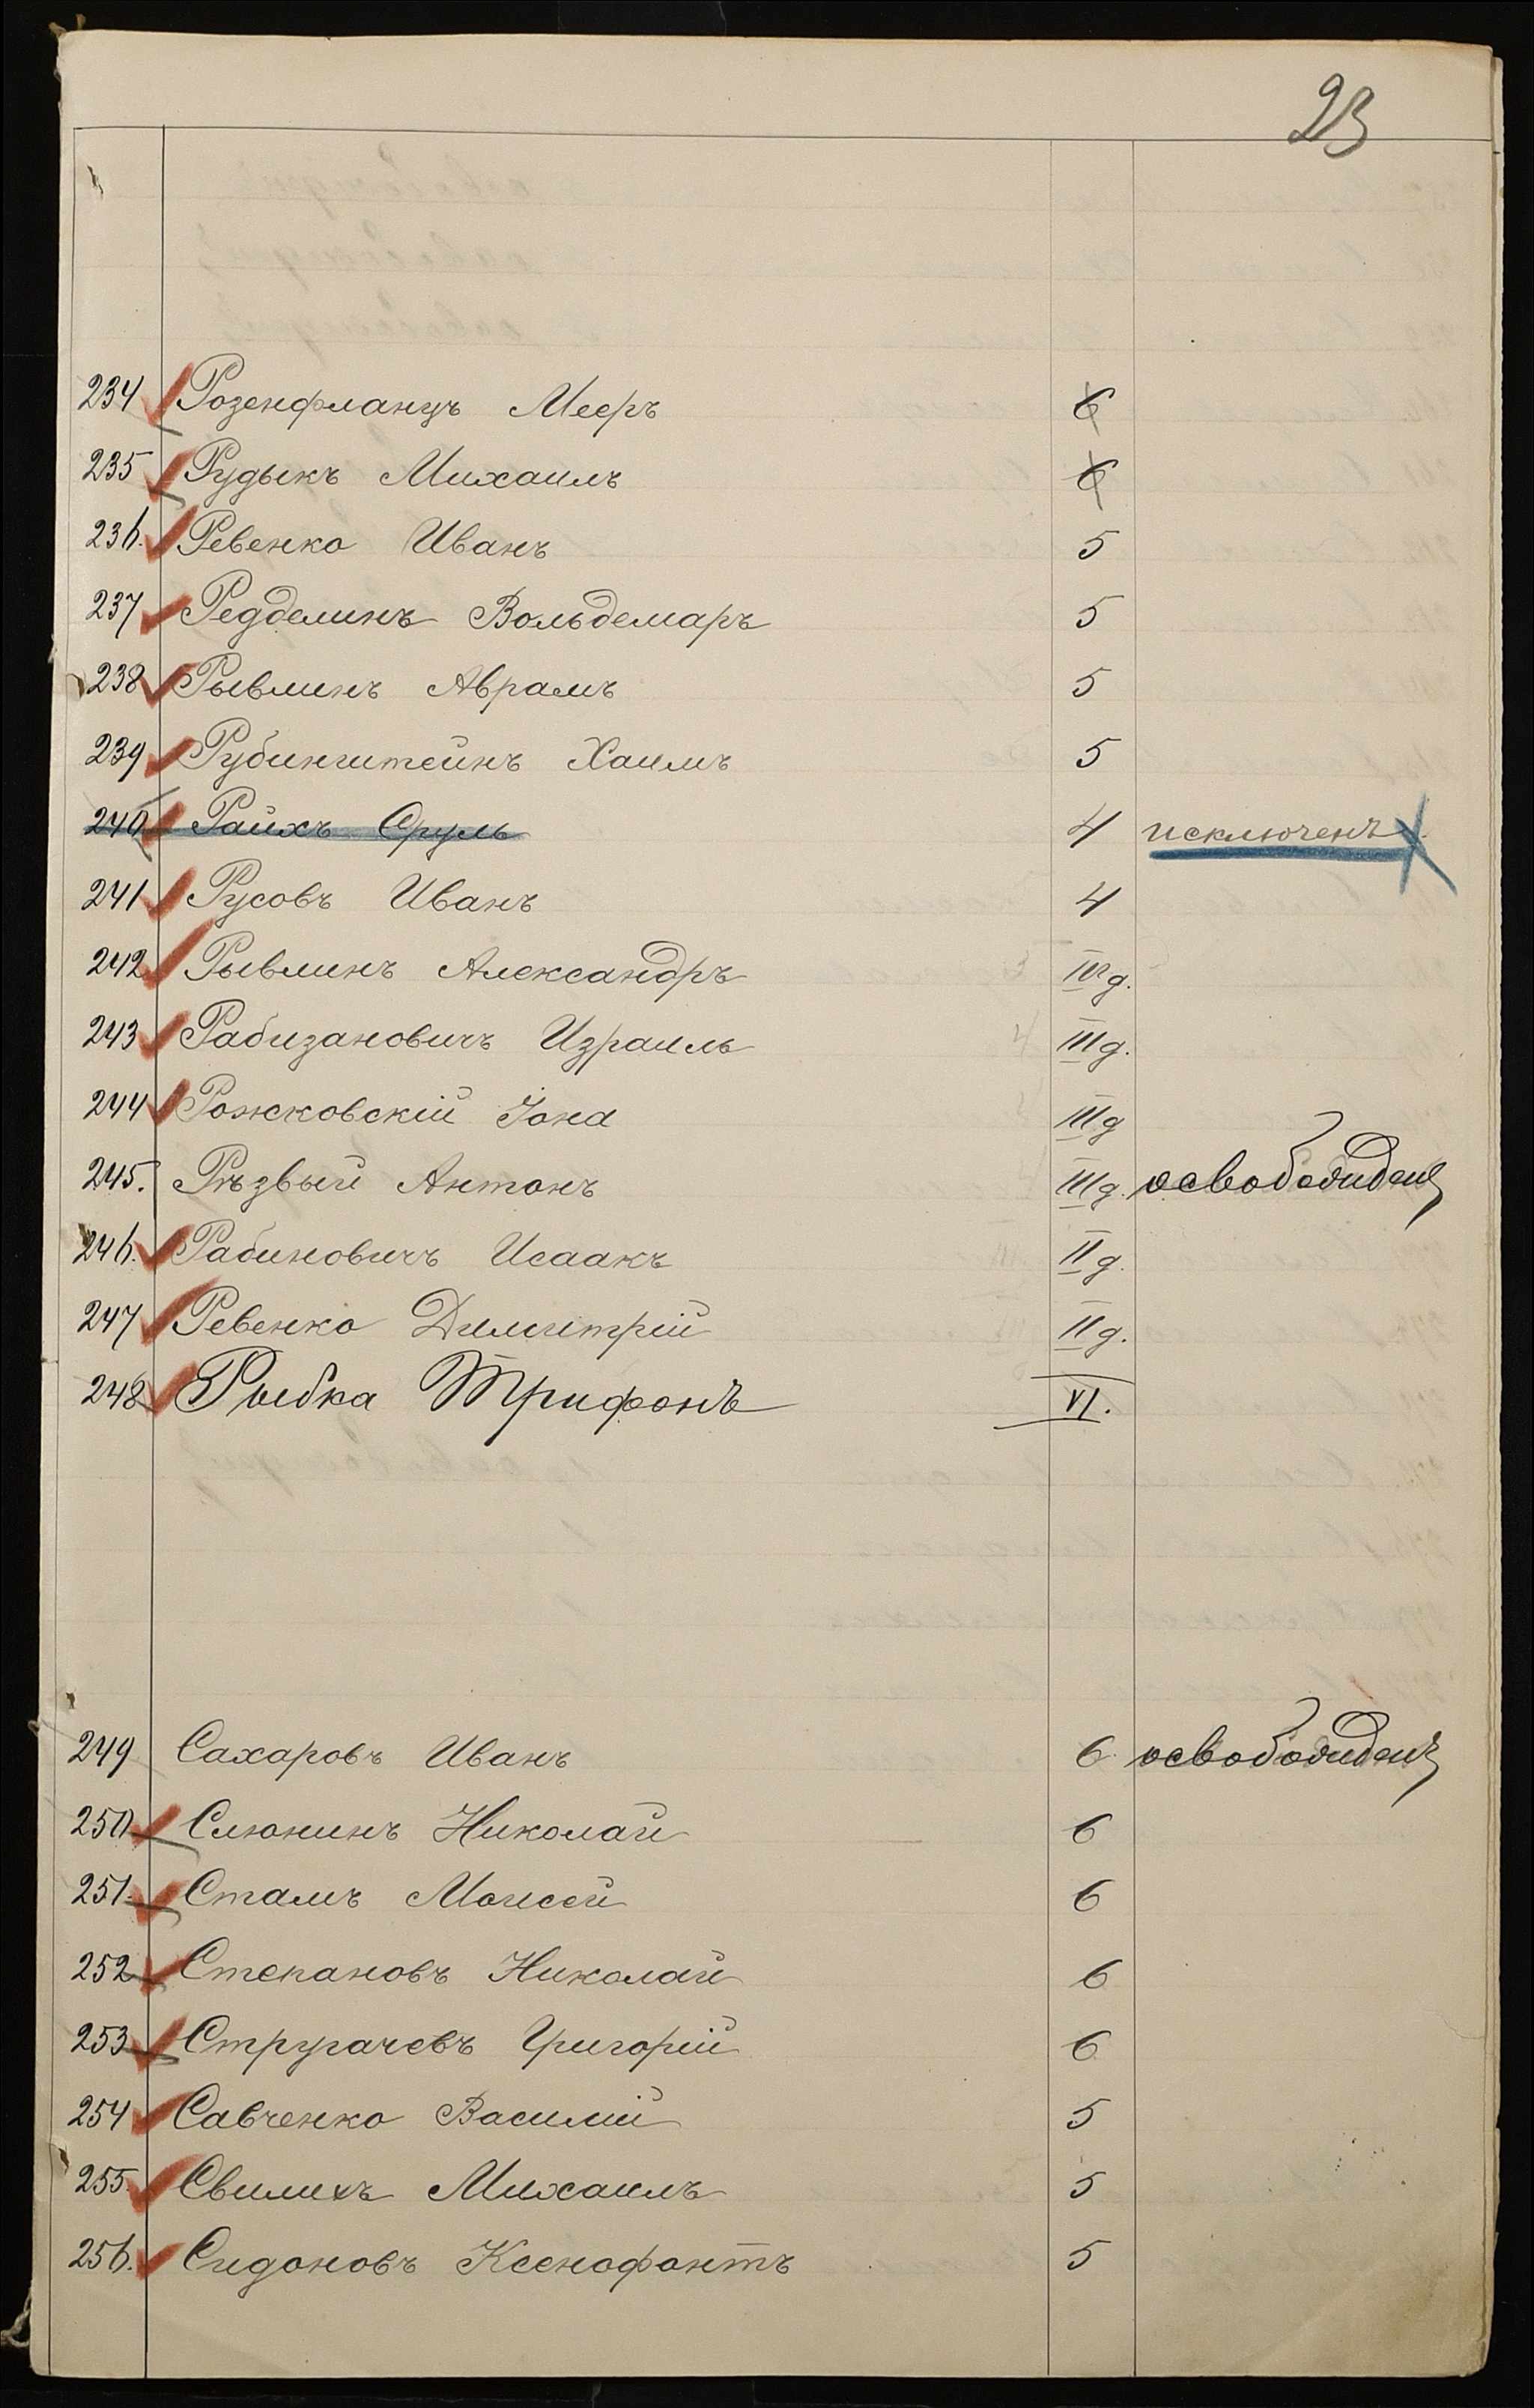 23
234 Розенфланцъ Мееръ 6
235 Рудыкъ Михаилъ 6
236. Ревенко Иванъ 5
237 Редделинъ Вольдемаръ 5
238 Рывлинъ Абрамъ 5
239 Рубинштейнъ Хаимъ 5
240 Райхъ Сруль 4 исключенъ
241 Русовъ Иванъ 4
242 Рывлинъ Александръ д.
243 Рабизановичъ Израиль III д.
244 Рожковскій Іона III д
245. Рѣзвый Антонъ III д. освобожденъ
246. Рабиновичъ Исаакъ II д.
247 Ревенко Димитрій II д.
248 Рыбка Трифонъ VI.
249 Сахаровъ Иванъ 6 освобожденъ
250 Слюнинъ Николай 6
251. Стамъ Моисей 6
252 Степановъ Николай 6
253 Стругачевъ Григорій 6
254 Савченко Василій 5
255. Михаилъ 5
256. Сидоновъ Ксенофонтъ 5